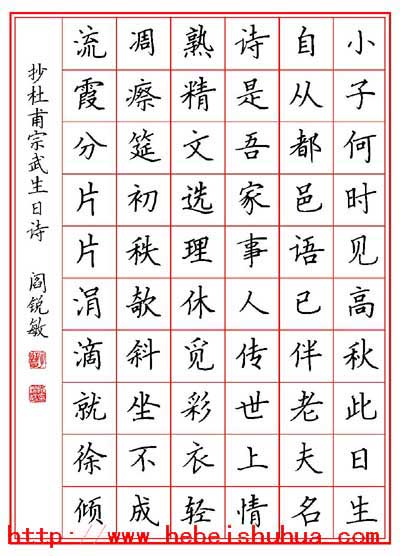 小子何时见高秋此日生
自从都邑语已伴老夫名
诗是吾家事人传世上情
熟精文选理休觅彩衣轻
凋瘵筵初秩欹斜坐不成
流霞分片片涓滴就徐倾
抄杜甫宗武生日诗 阎锐敏
http://www.hebeishuhua.com